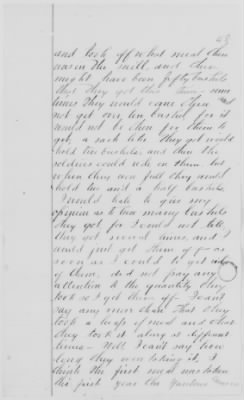 and took off what meal there
was in the mill, and there
might have been fifty bushels
that they got that time. Some
times they would come and
not get over ten bushels for it
would not be there for them to
get, a sack like they got would
hold two bushels, and then the
soldiers could ride on them, but
when they were full they would
hold two and a half bushels.
I would hate to give my
opinion as to how many bushels
they got for I could not tell
they got several times, and I
would just get them off as
soon as I could to get rid
of them, did not pay any
attention to the quantity they
took so I got them off. I can't
say any more than that they
took a heap of meal and that
they took it along at different
times — Well I can't say how
long they were taking it, I
think the first meal was taken
the first year the Yankees